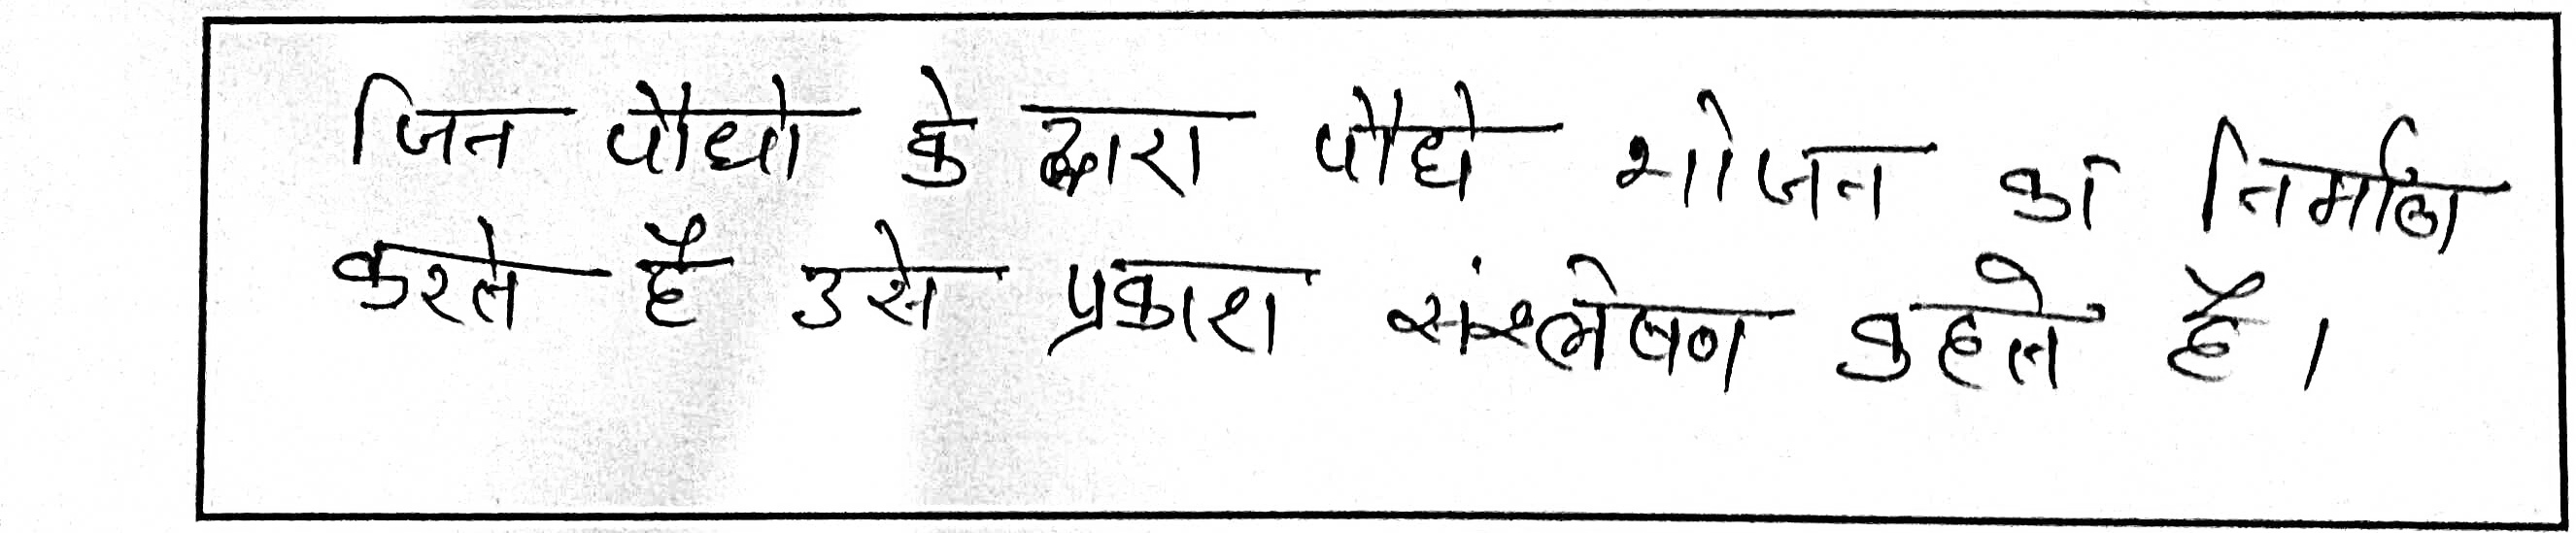 जिन पौधो के द्वारा पौधे भोजन का निर्माण
करते है उसे प्रकाश संश्लेषण कहते है।